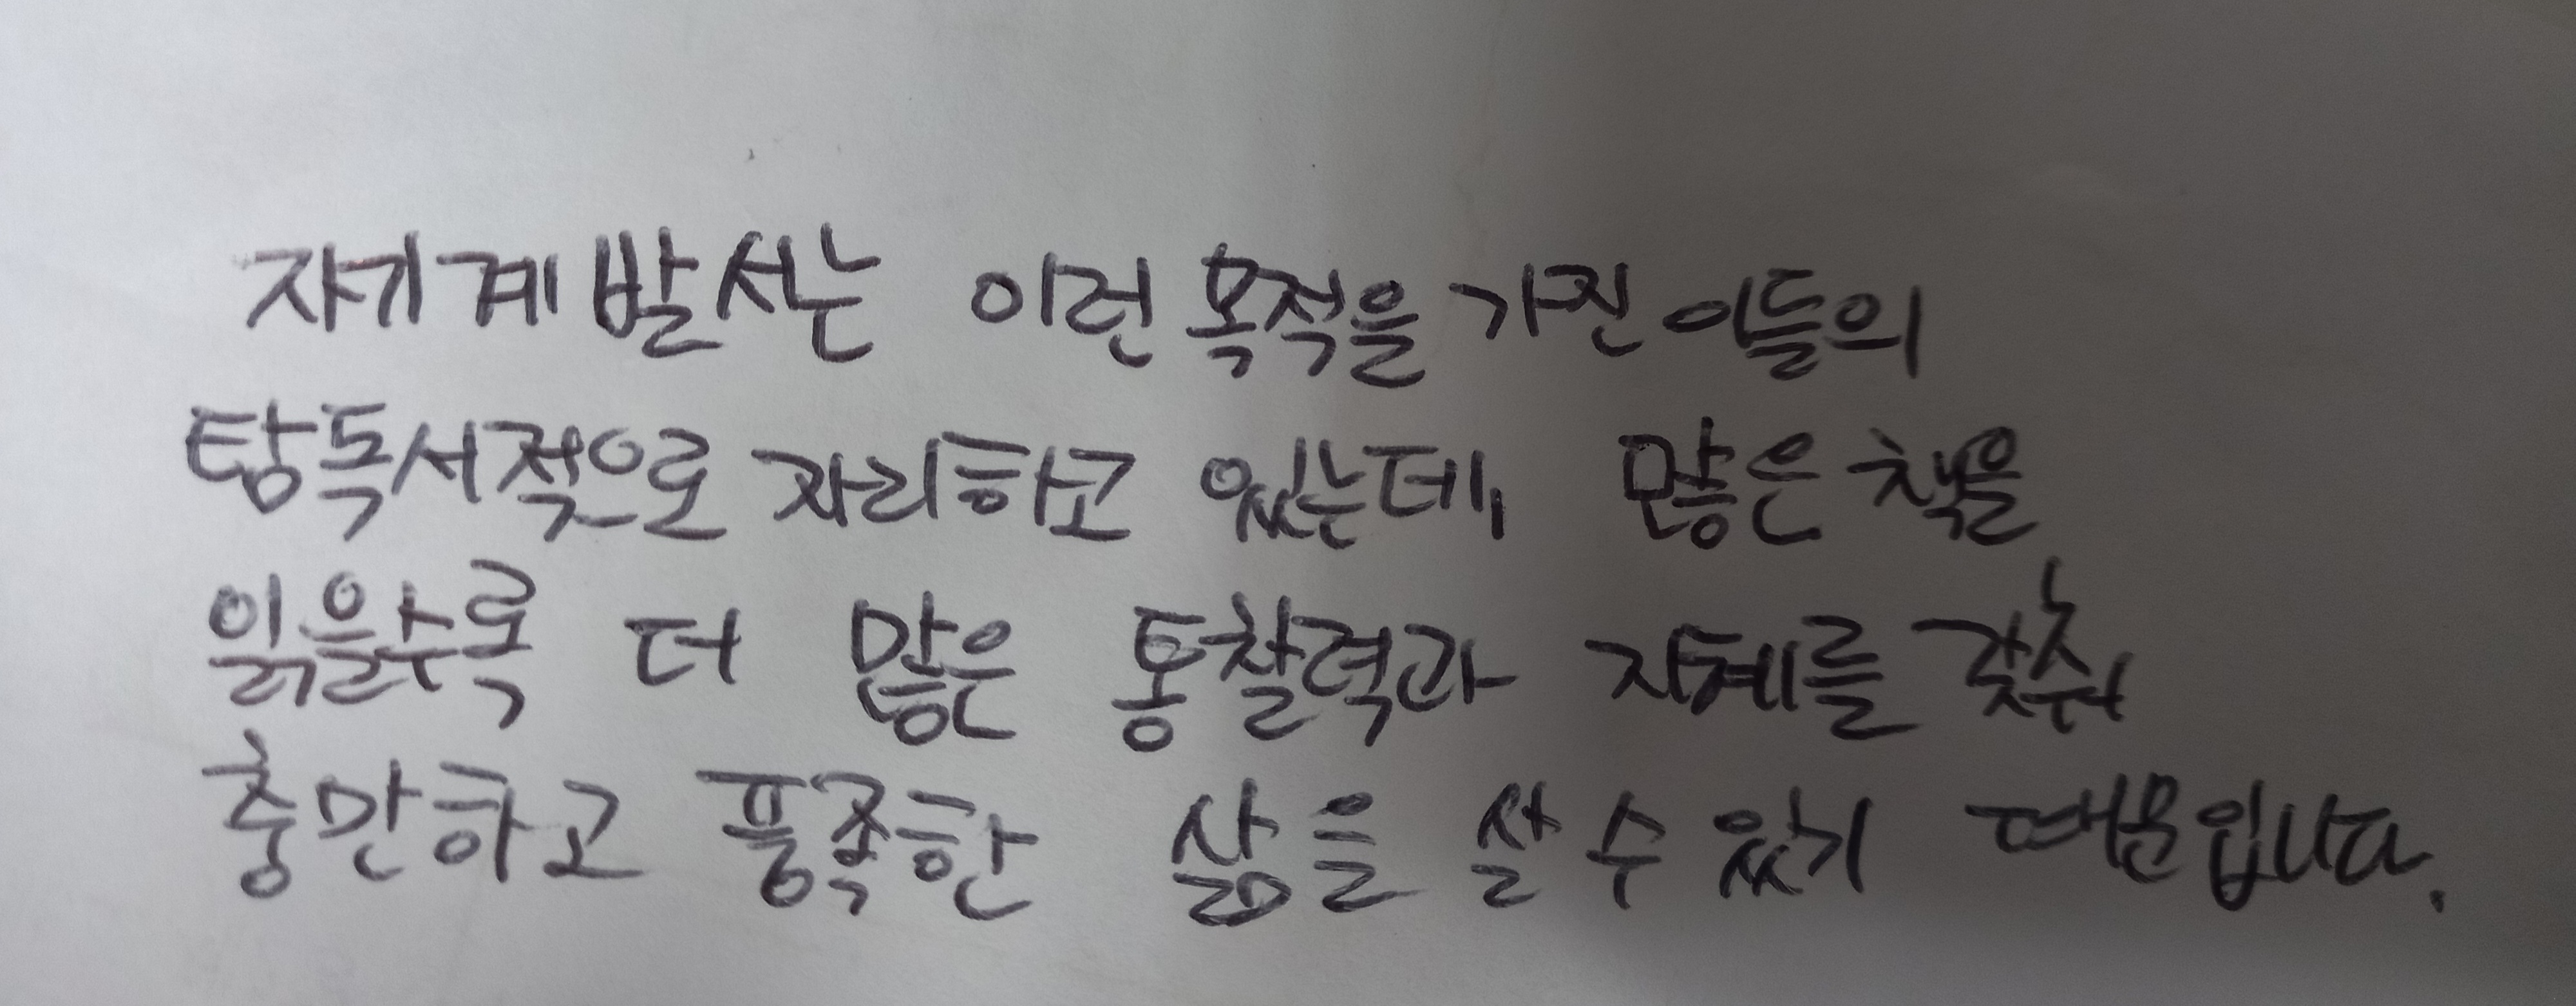 자기계발서는 이런 목적을 가진 이들의
탐독서적으로 자리하고 있는데, 많은 책을
읽을수록 더 많은 통찰력과 지혜를 갖춰
충만하고 풍족한 삶을 살 수 있기 때문입니다.